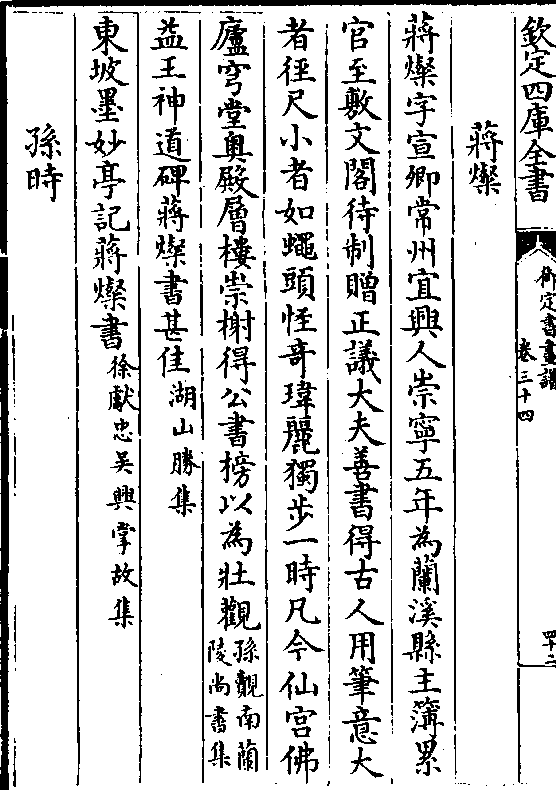 欽定四庫全書
御定書畫譜
卷三十四
四十二
蔣燦
蔣燦字宣卿常州宜興人崇寧五年為蘭溪縣主簿累
官至敷文閣待制贈正議大夫善書得古人用筆意大
者徑尺小者如蠅頭怪奇瑋麗獨步一時凡今仙宫佛
廬穹堂奥殿層樓崇榭得公書榜以為壯觀孫覿南蘭
陵尚書集
益王神道碑蔣燦書甚佳湖山勝集
東坡墨妙亭記蔣燦書徐獻忠吴興掌故集
孫時